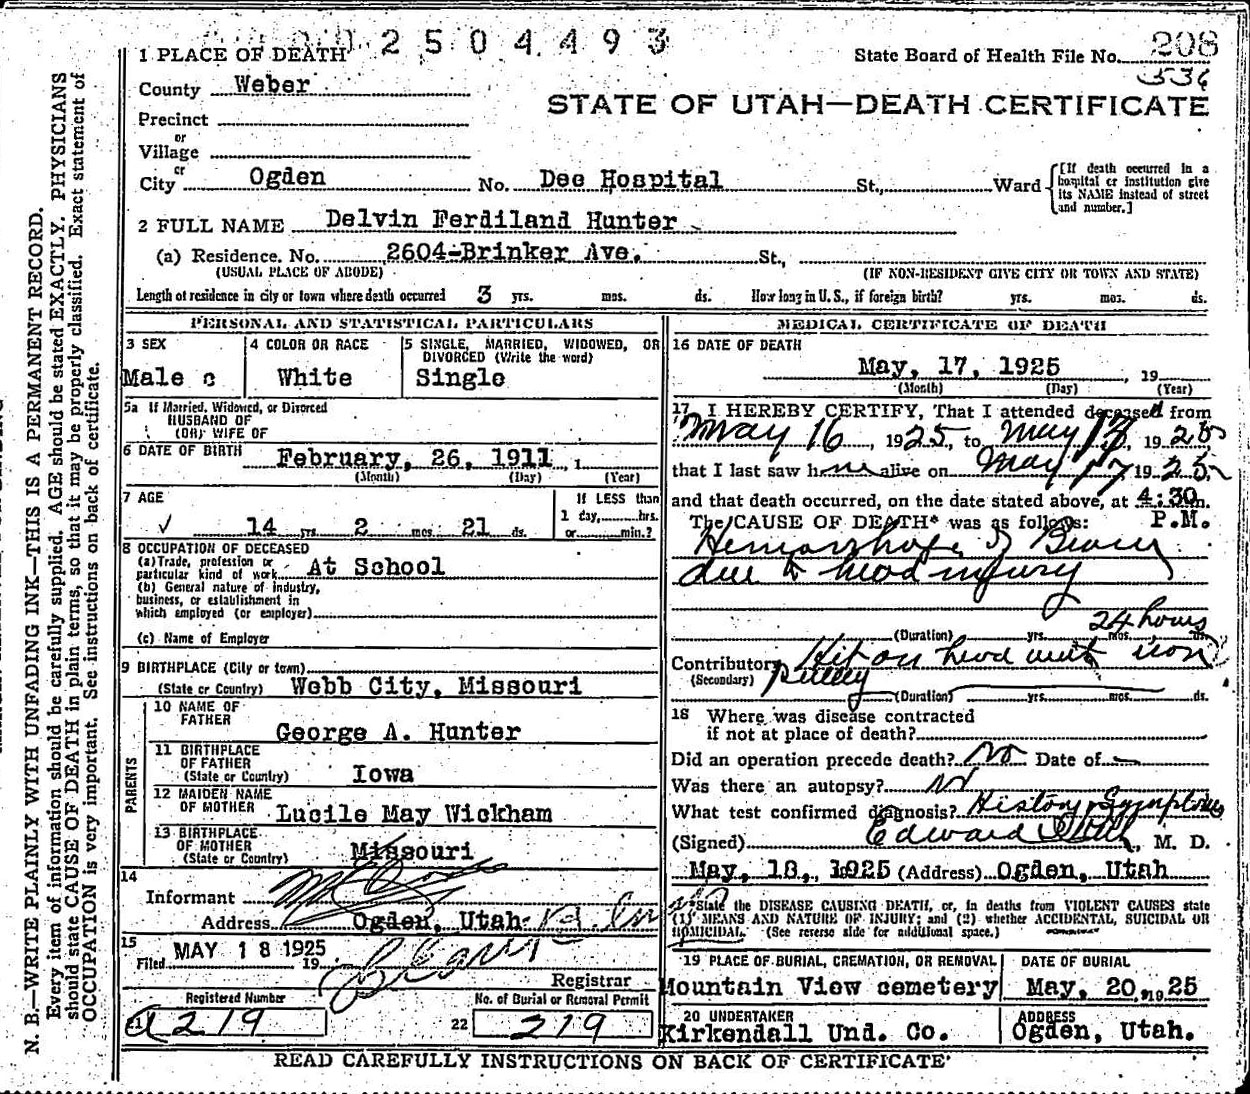 2504493
1 PLACE OF DEATH
State Board of Health File No. 208
536
County Weber
STATE OF UTAH—DEATH CERTIFICATE
Precinct
or
Village
or
City Ogden No. Dee Hospital St., Ward
[If death occurred in a hospital or institution give its NAME instead of street and number.]
2 FULL NAME Delvin Ferdiland Hunter
(a) Residence. No. 2604-Brinker Ave. St.,
(USUAL PLACE OF ABODE) (IF NON-RESIDENT GIVE CITY OR TOWN AND STATE)
Length of residence in city or town where death occurred 3 yrs. mos. ds. How long in U. S., if foreign birth? yrs. mos. ds.
PERSONAL AND STATISTICAL PARTICULARS
3 SEX
Male
4 COLOR OR RACE
White
5 SINGLE, MARRIED, WIDOWED, OR
DIVORCED (Write the word)
Single
5a If Married, Widowed, or Divorced
HUSBAND OF
(OR) WIFE OF
6 DATE OF BIRTH February, 26, 1911 , 1
(Month) (Day) (Year)
7 AGE
14 yrs. 2 mos. 21 ds.
If LESS than
1 day, hrs.
or min.?
8 OCCUPATION OF DECEASED
(a) Trade, profession or
particular kind of work At School
(b) General nature of industry,
business, or establishment in
which employed (or employer)
(c) Name of Employer
9 BIRTHPLACE (City or town)
(State or Country) Webb City, Missouri
PARENTS
10 NAME OF
FATHER
George A. Hunter
11 BIRTHPLACE
OF FATHER
(State or Country) Iowa
12 MAIDEN NAME
OF MOTHER Lucile May Wickham
13 BIRTHPLACE
OF MOTHER
(State or Country) Missouri
14
Informant
Address Ogden, Utah
15
Filed MAY 18 1925 19
Registrar
Registered Number
21 219
No. of Burial or Removal Permit
22 219
MEDICAL CERTIFICATE OF DEATH
16 DATE OF DEATH
May, 17, 1925 , 19
(Month) (Day) (Year)
17 I HEREBY CERTIFY, That I attended deceased from
May 16, 1925, to May 17, 1925
that I last saw him alive on May 17 1925,
and that death occurred, on the date stated above, at 4:30 m.
P.M.
The CAUSE OF DEATH* was as follows:
Hemorrhage of Brain
due to head injury
24 hours
(Duration) yrs. mos. ds.
Contributory Hit on head with iron
(Secondary) pulley
(Duration) yrs. mos. ds.
18 Where was disease contracted
if not at place of death?
Did an operation precede death? No Date of
Was there an autopsy? No
What test confirmed diagnosis? History Symptoms
(Signed) Edward , M. D.
May, 18, 1925 (Address) Ogden, Utah
*State the DISEASE CAUSING DEATH, or, in deaths from VIOLENT CAUSES state
(1) MEANS AND NATURE OF INJURY; and (2) whether ACCIDENTAL, SUICIDAL OR
HOMICIDAL. (See reverse side for additional space.)
19 PLACE OF BURIAL, CREMATION, OR REMOVAL
Mountain View cemetery
DATE OF BURIAL
May, 20, 19 25
20 UNDERTAKER
Kirkendall Und. Co.
ADDRESS
Ogden, Utah.
READ CAREFULLY INSTRUCTIONS ON BACK OF CERTIFICATE
N. B.—WRITE PLAINLY WITH UNFADING INK—THIS IS A PERMANENT RECORD.
Every item of information should be carefully supplied. AGE should be stated EXACTLY. PHYSICIANS
should state CAUSE OF DEATH in plain terms, so that it may be properly classified. Exact statement of
OCCUPATION is very important. See instructions on back of certificate.